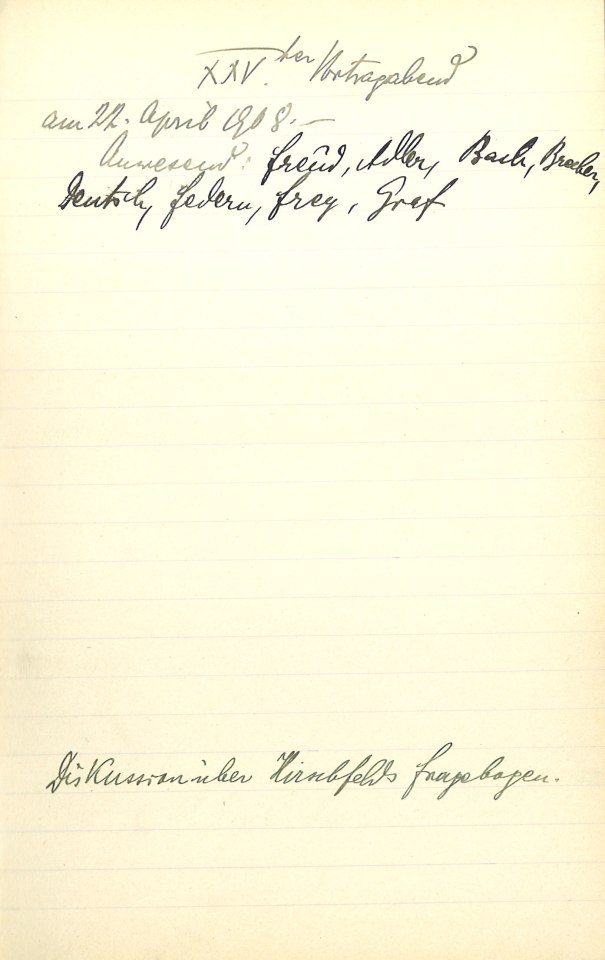 XXV.ter Vortragabend
am 22. April 1908.—
Anwesend: Freud, Adler, Bach, Brecher,
Deutsch, Federn, Frey, Graf
Diskussion über Hirschfelds Fragebogen.